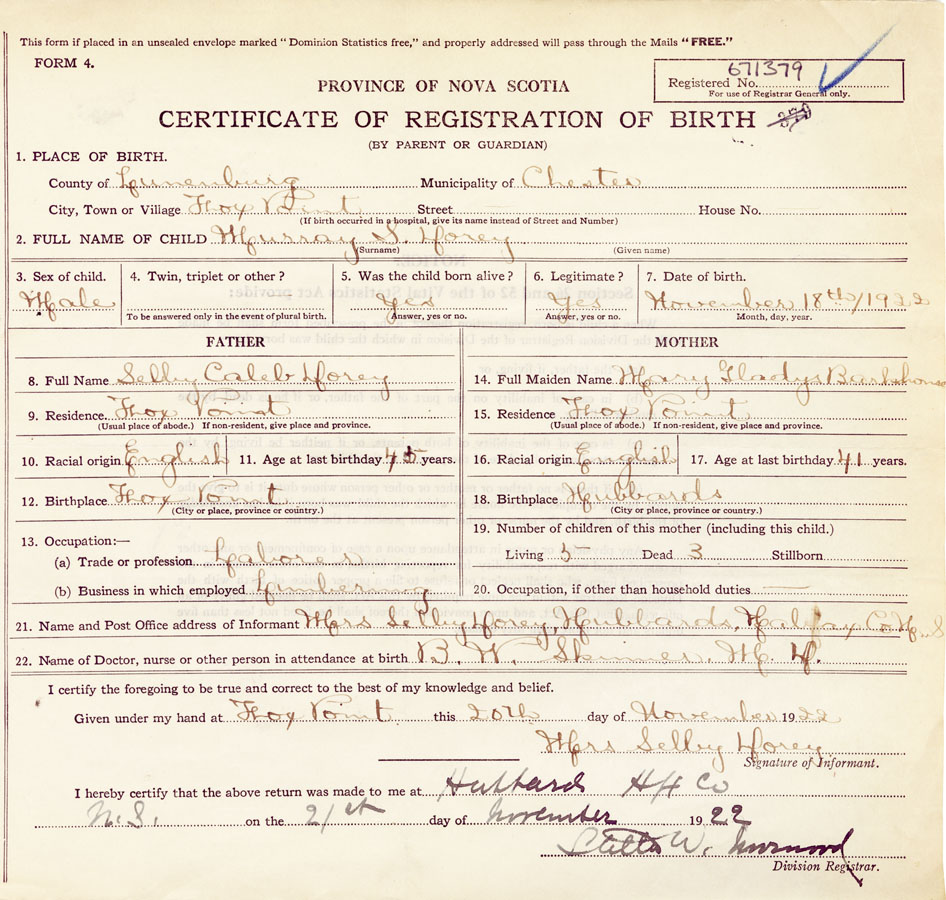 This form if placed in an unsealed envelope marked "Dominion Statistics free," and properly addressed will pass through the Mails "FREE."
FORM 4.
671379
Registered No.
For use of Registrar General only.
PROVINCE OF NOVA SCOTIA
CERTIFICATE OF REGISTRATION OF BIRTH
(BY PARENT OR GUARDIAN)
1. PLACE OF BIRTH.
County of Lunenburg Municipality of Chester
City, Town or Village Fox Point Street House No.
(If birth occurred in a hospital, give its name instead of Street and Number)
2. FULL NAME OF CHILD Murray S. Dorey
(Surname) (Given name)
3. Sex of child. 4. Twin, triplet or other? 5. Was the child born alive? 6. Legitimate? 7. Date of birth.
Male Yes Yes November 18th/1922
To be answered only in the event of plural birth. Answer, yes or no. Answer, yes or no. Month, day, year.
FATHER MOTHER
8. Full Name Selby Caleb Dorey 14. Full Maiden Name Mary Gladys
9. Residence Fox Point 15. Residence Fox Point
(Usual place of abode.) If non-resident, give place and province. (Usual place of abode.) If non-resident, give place and province.
10. Racial origin English 11. Age at last birthday 45 years. 16. Racial origin English 17. Age at last birthday 41 years.
12. Birthplace Fox Point 18. Birthplace Hubbards
(City or place, province or country.) (City or place, province or country.)
13. Occupation:— 19. Number of children of this mother (including this child.)
(a) Trade or profession Laborer Living 5 Dead 3 Stillborn
(b) Business in which employed Lumbering 20. Occupation, if other than household duties
21. Name and Post Office address of Informant Mrs Selby Dorey, Hubbards, Halifax Co. N. S
22. Name of Doctor, nurse or other person in attendance at birth B. W. Skinner. M. D.
I certify the foregoing to be true and correct to the best of my knowledge and belief.
Given under my hand at Fox Point this 20th day of November 1922
Mrs Selby Dorey
Signature of Informant.
I hereby certify that the above return was made to me at Hubbards Hfx Co
N.S. on the 21st day of November 1922
W.
Division Registrar.